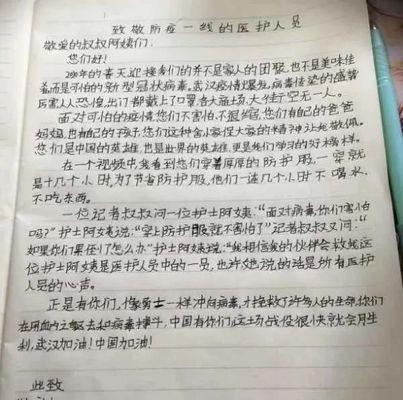 致敬防疫一线的医护人员
敬爱的叔叔阿姨们:
您们好!
2020年的春天迎接我们的并不是家人的团聚,也不是美味佳
着而是可怕的新型冠状病毒。武汉疫情爆发,病毒传染的感势
厉害人人恐惶,出门都戴上了口罩各大商场,大街行空无一人。
面对可怕的疫情,您们不害怕,不退缩,您们有自己的爸爸
妈妈,也有自己的孩子,您们这种舍小家保大家的精神让我敬佩。
您们是中国的英雄,也是世界的英雄,更是我们学习的好榜样。
在一个视频中,我看到您们穿着厚厚的防护服,一穿就
是十几个小时,为了节省防护服,他们一连几个小时不喝水,
不吃东西。
一位记者叔叔问一位护士阿姨:“面对病毒,你们害怕
吗?”护士阿姨说:“穿上防护服就不害怕了”记者叔叔又问:“
如果你们累任了怎么办”护士阿姨说:“我相信我的伙伴会救我这
位护士阿姨是医护人员中的一员,也许她说的话是所有医护
人员的心声。
正是有你们,像勇士一样冲向病毒,才挽救了许多人的生命,你们
在用血肉之躯去和病毒搏斗,中国有你们这场战役很快就会月生
利,武汉加油!中国加油!
此致